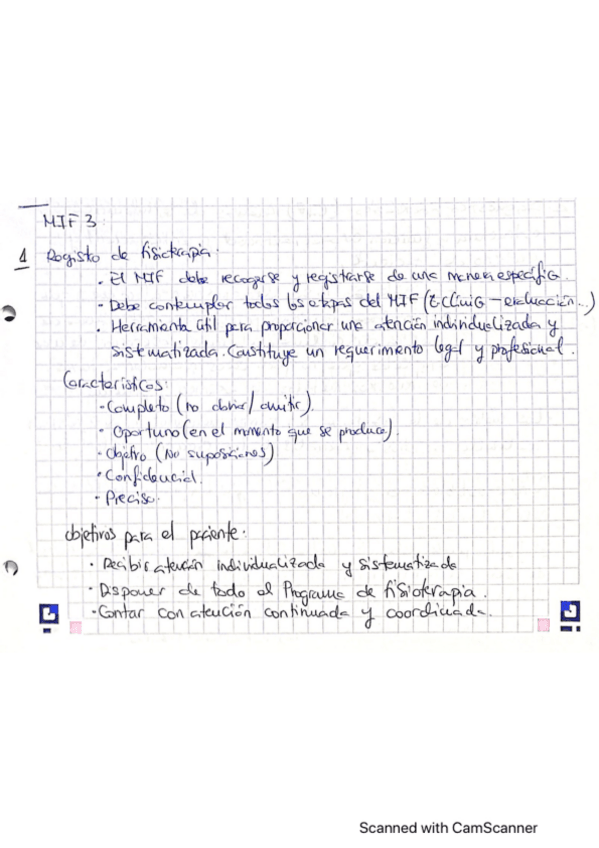 MIF 3
1 Registo de fisioterapia.
· El MIF debe recogerse y registrarse de una manera específica.
- Debe contemplar todas las etapas del MIF (E. Clínica - evaluación..)
· Herramienta útil para proporcionar una atención individualizada y
sistematizada. Constituye un requerimiento legal y profesional.
Características:
- Completo (no obviar/omitir).
· Oportuno (en el momento que se produce).
- Objetivo (No suposiciones)
· Confidencial.
· Preciso.
Objetivos para el paciente:
· Recibir atención individualizada y sistematizada
· Disponer de todo el Programa de fisioterapia.
· Contar con atención continuada y coordinada.
Scanned with CamScanner